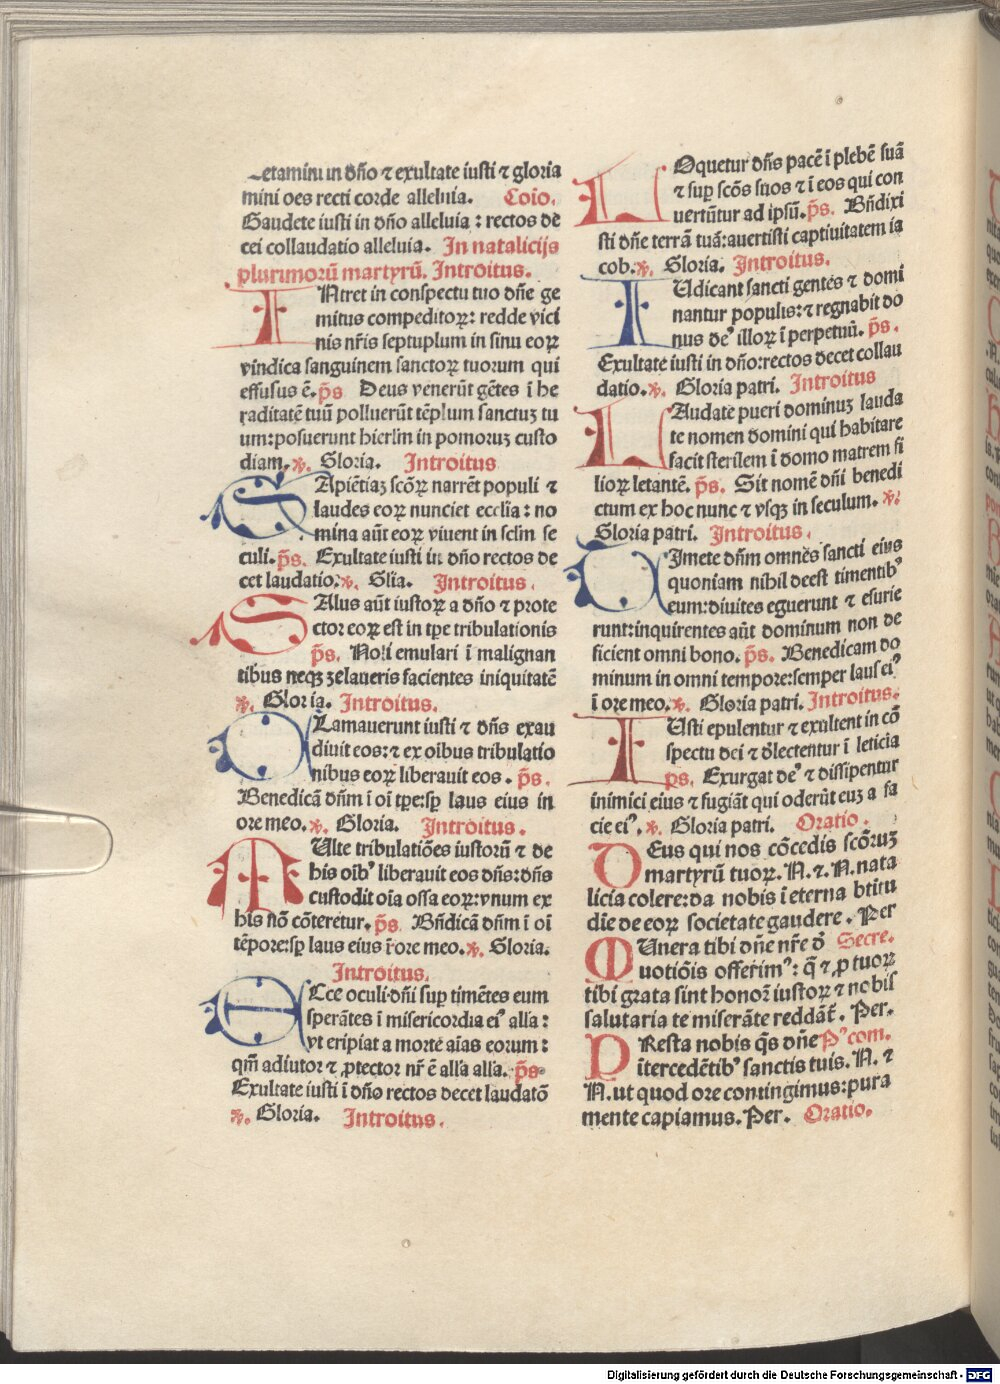 Letamini in dño ⁊ exultate iusti ⁊ gloria
mini oẽs recti corde alleluia. Coio.
Gaudete iusti in dño alleluia : rectos de
cet collaudatio alleluia. In natalicijs
plurimorũ martyrũ. Introitus.
INtret in conspectu tuo dñe ge
mitus compeditoꝝ: redde vici
nis nr̃is septuplum in sinu eoꝝ
vindica sanguinem sanctoꝝ tuorum qui
effusus ẽ. p̃s Deus venerũt gẽtes ĩ he
raditatẽ tuũ polluerũt tẽplum sanctuꝫ tu
um:posuerunt hierlm̃ in pomoruꝫ custo
diam. ℣. Gloria. Introitus
SApiẽtiaꝫ scõꝝ narrẽt populi ⁊
laudes eoꝝ nunciet ecclia : no
mina aũt eoꝝ viuent in sclm̃ se
culi. p̃s. Exultate iusti in dño rectos de
cet laudatio. ℣. Glia. Introitus.
SAlus aũt iustoꝝ a dño ⁊ prote
ctor eoꝝ est in tp̃e tribulationis
p̃s. Noli emulari ĩ malignan
tibus neqꝫ zelaueris facientes iniquitatẽ
℣. Gloria. Introitus.
CLamauerunt iusti ⁊ dñs exau
diuit eos:⁊ ex oĩbus tribulatio
nibus eoꝝ liberauit eos. p̃s.
Benedicã dñm ĩ oĩ tp̃e:sꝑ laus eius in
ore meo. ℣. Gloria. Introitus.
MUlte tribulatiões iustorũ ⁊ de
his oĩbꝰ liberauit eos dñs:dñs
custodit oĩa ossa eoꝝ:vnum ex
his nõ cõteretur. p̃s Bñdicã dñm ĩ oĩ
tẽpore:sꝑ laus eius ĩ ore meo. ℣. Gloria.
Introitus.
ECce oculi dñi suꝑ timẽtes eum
sperãtes ĩ misericordia eiꝰ alla :
vt eripiat a morte aĩas eorum :
qm̃ adiutor ⁊ ꝓtector nr̃ ẽ alla alla. p̃s
Exultate iusti ĩ dño rectos decet laudatõ
℣. Gloria. Introitus.
LOquetur dñs pacẽ ĩ plebẽ suã
⁊ suꝑ scõs suos ⁊ ĩ eos qui con
uertũtur ad ipsũ. p̃s. Bñdixi
sti dñe terrã tuã:auertisti captiuitatem ia
cob. ℣. Gloria. Introitus.
IUdicant sancti gentes ⁊ domi
nantur populis:⁊ regnabit do
nus deꝰ illoꝝ ĩ perpetuũ. p̃s.
Exultate iusti in dño:rectos decet collau
datio. ℣. Gloria patri. Introitus
LAudate pueri dominuꝫ lauda
te nomen domini qui habitare
facit sterilem ĩ domo matrem fi
lioꝝ letantẽ. p̃s. Sit nomẽ dñi benedi
ctum ex hoc nunc ⁊ vsqꝫ in seculum. ℣.
Gloria patri. Introitus.
TImete dñm omnes sancti eius
quoniam nihil deest timentibꝰ
eum:diuites eguerunt ⁊ esurie
runt:inquirentes aũt dominum non de
ficient omni bono. p̃s. Benedicam do
minum in omni tempore:semper laus eiꝰ
ĩ ore meo. ℣. Gloria patri. Introitus.
IUsti epulentur ⁊ exultent in cõ
spectu dei ⁊ delectentur ĩ leticia
ps. Exurgat deꝰ ⁊ dissipentur
inimici eius ⁊ fugiãt qui oderũt euꝫ a fa
cie eiꝰ. ℣. Gloria patri. Oratio.
DEus qui nos cõcedis scõruꝫ
martyrũ tuoꝝ. N. ⁊. N. nata
licia colere:da nobis ĩ eterna btĩtu
die de eoꝝ societate gaudere. Per
MUnera tibi dñe nr̃e ď Secre.
uotiõis offerimꝰ : q̃ ⁊ ꝓ tuoꝝ
tibi grata sint honoꝛ iustoꝝ ⁊ nobis
salutaria te miserãte reddãt̃. Per.
PResta nobis q̃s dñe Pꝰcom.
ĩtercedẽtibꝰ sanctis tuis. N. ⁊
N. ut quod ore contingimus:pura
mente capiamus. Per. Oratio.
Digitalisierung gefördert durch die Deutsche Forschungsgemeinschaft - DFG